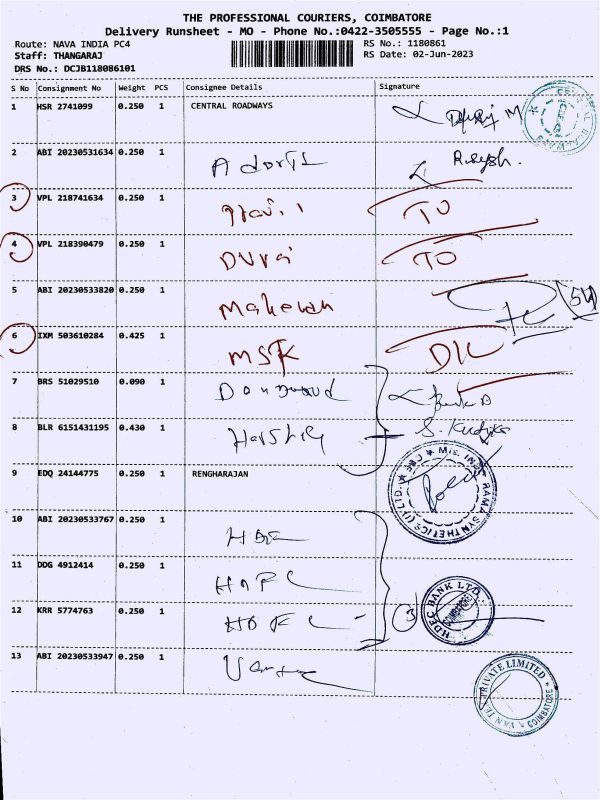 THE PROFESSIONAL COURIERS, COIMBATORE
Delivery Runsheet - MO - Phone No.:0422-3505555 - Page No.:1
Route: NAVA INDIA PC4 RS No.: 1180861
Staff: THANGARAJ RS Date: 02-Jun-2023
DRS No.: DCJB118086101
S No Consignment No Weight PCS Consignee Details Signature
1 HSR 2741099 0.250 1 CENTRAL ROADWAYS
2 ABI 20230531634 0.250 1
3 VPL 218741634 0.250 1 TO
4 VPL 218390479 0.250 1 Durai TO
5 ABI 20230533820 0.250 1
6 IXM 503610284 0.425 1 MSK DIL
7 BRS 51029510 0.090 1
8 BLR 6151431195 0.430 1 Harshig
9 EDQ 24144775 0.250 1 RENGHARAJAN
RAMA SYNTHETICS (I) LTD. CBE
10 ABI 20230533767 0.250 1
11 DDG 4912414 0.250 1 HDFC
12 KRR 5774763 0.250 1 HDFC 3 HDFC BANK LTD.
13 ABI 20230533947 0.250 1
PRIVATE LIMITED COIMBATORE